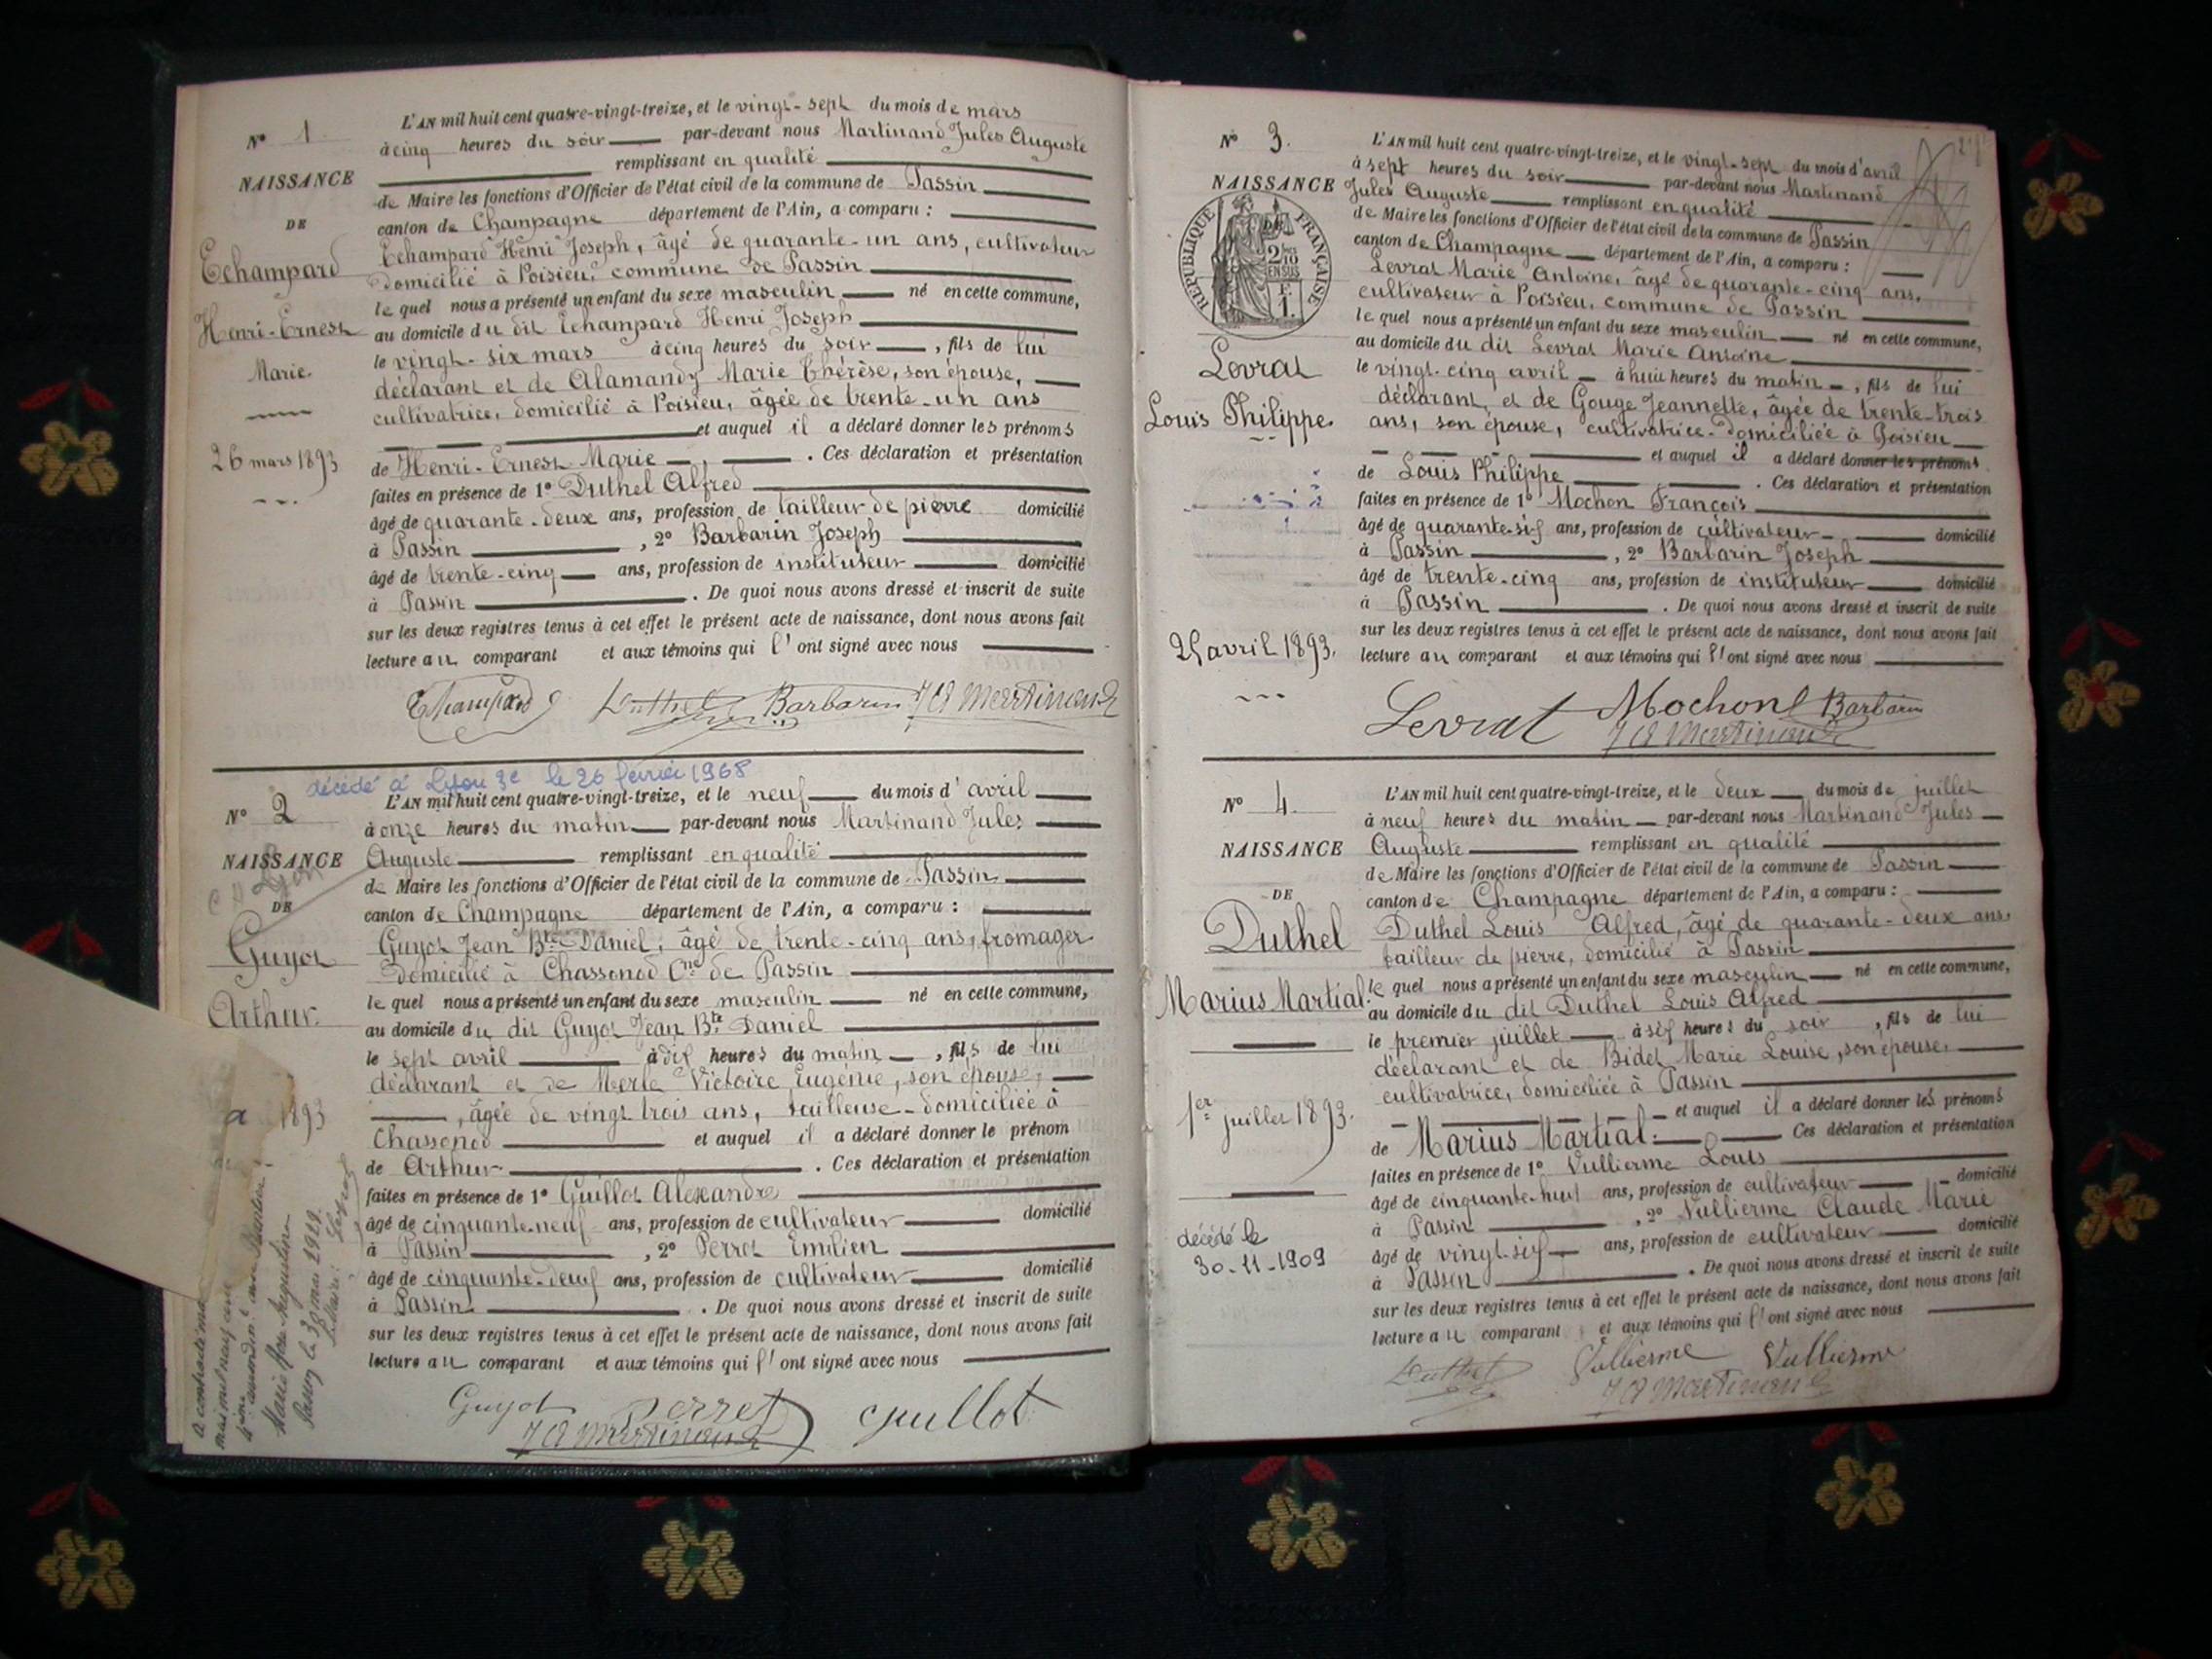 N° 1.
NAISSANCE
DE
Echampard
Henri-Ernest
Marie.
26 mars 1893
L'AN mil huit cent quatre-vingt-treize, et le vingt-sept du mois de mars
à cinq heures du soir par-devant nous Martinand Jules Auguste
remplissant en qualité
de Maire les fonctions d'Officier de l'état civil de la commune de Passin
canton de Champagne département de l'Ain, a comparu :
Echampard Henri Joseph, âgé de quarante-un ans, cultivateur
domicilié à Poisieu, commune de Passin
lequel nous a présenté un enfant du sexe masculin né en cette commune,
au domicile du dit Echampard Henri Joseph
le vingt-six mars à cinq heures du soir, fils de lui
déclarant et de Alamandy Marie Thérèse, son épouse,
cultivatrice, domicilié à Poisieu, âgée de trente-un ans
et auquel il a déclaré donner les prénoms
de Henri-Ernest Marie. Ces déclaration et présentation
faites en présence de 1° Duthel Alfred
âgé de quarante-deux ans, profession de tailleur de pierre domicilié
à Passin, 2° Barbarin Joseph
âgé de trente-cinq ans, profession de instituteur domicilié
à Passin. De quoi nous avons dressé et inscrit de suite
sur les deux registres tenus à cet effet le présent acte de naissance, dont nous avons fait
lecture au comparant et aux témoins qui l'ont signé avec nous
Echampard Duthel Barbarin J A Martinand
décédé à Lyon 3e le 26 février 1968
N° 2
NAISSANCE
DE
Guyot
Arthur.
1893
L'AN mil huit cent quatre-vingt-treize, et le neuf du mois d'avril
à onze heures du matin par-devant nous Martinand Jules
Auguste remplissant en qualité
de Maire les fonctions d'Officier de l'état civil de la commune de Passin
canton de Champagne département de l'Ain, a comparu :
Guyot Jean Bte Daniel, âgé de trente-cinq ans, fromager
domicilié à Chassonod Cne de Passin
lequel nous a présenté un enfant du sexe masculin né en cette commune,
au domicile du dit Guyot Jean Bte Daniel
le sept avril à dix heures du matin, fils de lui
déclarant et de Merle Victoire Eugénie, son épouse,
, âgée de vingt trois ans, tailleuse-domiciliée à
Chassonod et auquel il a déclaré donner le prénom
de Arthur. Ces déclaration et présentation
faites en présence de 1° Guillot Alexandre
âgé de cinquante-neuf ans, profession de cultivateur domicilié
à Passin, 2° Perret Emilien
âgé de cinquante-deux ans, profession de cultivateur domicilié
à Passin. De quoi nous avons dressé et inscrit de suite
sur les deux registres tenus à cet effet le présent acte de naissance, dont nous avons fait
lecture au comparant et aux témoins qui l'ont signé avec nous
Guyot Perret Guillot
J A Martinand
A contracté ma
mai mil neuf cent
Marie Augustine
Passin le 30 mai 1929.
N° 3.
NAISSANCE
RÉPUBLIQUE FRANÇAISE
2/10 EN SUS
F. 1.
Levrat
Louis Philippe.
25 avril 1893.
L'AN mil huit cent quatre-vingt-treize, et le vingt-sept du mois d'avril
à sept heures du soir par-devant nous Martinand
Jules Auguste remplissant en qualité
de Maire les fonctions d'Officier de l'état civil de la commune de Passin
canton de Champagne département de l'Ain, a comparu :
Levrat Marie Antoine, âgé de quarante-cinq ans,
cultivateur à Poisieu, commune de Passin
lequel nous a présenté un enfant du sexe masculin né en cette commune,
au domicile du dit Levrat Marie Antoine
le vingt-cinq avril à huit heures du matin, fils de lui
déclarant, et de Gouge Jeannette, âgée de trente-trois
ans, son épouse, cultivatrice-domiciliée à Poisieu
et auquel il a déclaré donner les prénoms
de Louis Philippe. Ces déclaration et présentation
faites en présence de 1° Mochon François
âgé de quarante-six ans, profession de cultivateur domicilié
à Passin, 2° Barbarin Joseph
âgé de trente-cinq ans, profession de instituteur domicilié
à Passin. De quoi nous avons dressé et inscrit de suite
sur les deux registres tenus à cet effet le présent acte de naissance, dont nous avons fait
lecture au comparant et aux témoins qui l'ont signé avec nous
Levrat Mochon Barbarin
J A Martinand
N° 4.
NAISSANCE
DE
Duthel
Marius Martial.
1er juillet 1893.
décédé le
30-11-1909
L'AN mil huit cent quatre-vingt-treize, et le deux du mois de juillet
à neuf heures du matin par-devant nous Martinand Jules
Auguste remplissant en qualité
de Maire les fonctions d'Officier de l'état civil de la commune de Passin
canton de Champagne département de l'Ain, a comparu :
Duthel Louis Alfred, âgé de quarante-deux ans,
tailleur de pierre, domicilié à Passin
lequel nous a présenté un enfant du sexe masculin né en cette commune,
au domicile du dit Duthel Louis Alfred
le premier juillet à six heures du soir, fils de lui
déclarant et de Bidet Marie Louise, son épouse,
cultivatrice, domiciliée à Passin
et auquel il a déclaré donner les prénoms
de Marius Martial. Ces déclaration et présentation
faites en présence de 1° Vullierme Louis
âgé de cinquante-huit ans, profession de cultivateur domicilié
à Passin, 2° Vullierme Claude Marie
âgé de vingt-six ans, profession de cultivateur domicilié
à Passin. De quoi nous avons dressé et inscrit de suite
sur les deux registres tenus à cet effet le présent acte de naissance, dont nous avons fait
lecture au comparant et aux témoins qui l'ont signé avec nous
Duthel Vullierme Vullierme
J A Martinand